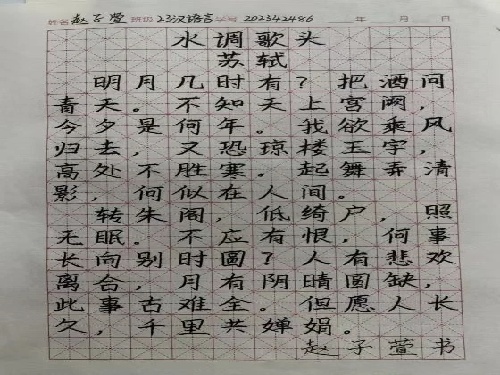 姓名 赵子萱 班级 23汉语言 学号 202342486 年 月 日
水调歌头
苏轼
明月几时有？把酒问
青天。不知天上宫阙，
今夕是何年。我欲乘风
归去，又恐琼楼玉宇，
高处不胜寒。起舞弄清
影，何似在人间。
转朱阁，低绮户，照
无眠。不应有恨，何事
长向别时圆？人有悲欢
离合，月有阴晴圆缺，
此事古难全。但愿人长
久，千里共婵娟。
赵子萱书